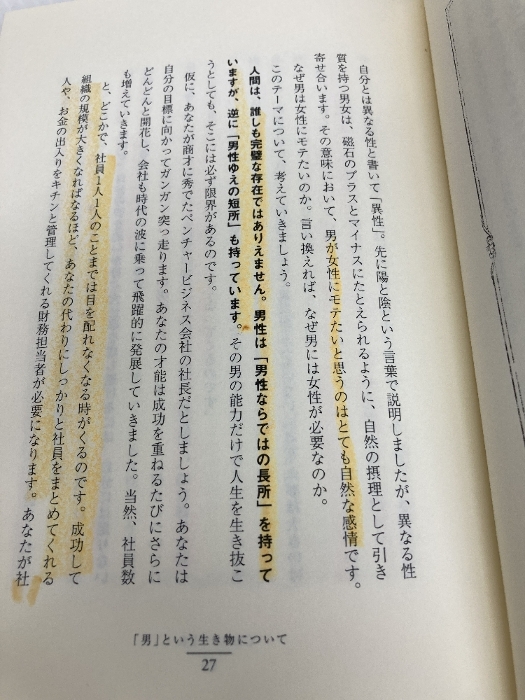 自分とは異なる性と書いて「異性」。先に陽と陰という言葉で説明しましたが、異なる性
質を持つ男女は、磁石のプラスとマイナスにたとえられるように、自然の摂理として引き
寄せ合います。その意味において、男が女性にモテたいと思うのはとても自然な感情です。
なぜ男は女性にモテたいのか。言い換えれば、なぜ男には女性が必要なのか。
このテーマについて、考えていきましょう。
人間は、誰しも完璧な存在ではありえません。男性は「男性ならではの長所」を持って
いますが、逆に「男性ゆえの短所」も持っています。その男の能力だけで人生を生き抜こ
うとしても、そこには必ず限界があるのです。
仮に、あなたが商才に秀でたベンチャービジネス会社の社長だとしましょう。あなたは
自分の目標に向かってガンガン突っ走ります。あなたの才能は成功を重ねるたびにさらに
どんどんと開花し、会社も時代の波に乗って飛躍的に発展していきました。当然、社員数
も増えていきます。
と、どこかで、社員1人1人のことまでは目を配れなくなる時がくるのです。成功して
組織の規模が大きくなればなるほど、あなたの代わりにしっかりと社員をまとめてくれる
人や、お金の出入りをキチンと管理してくれる財務担当者が必要になります。あなたが社
「男」という生き物について
27